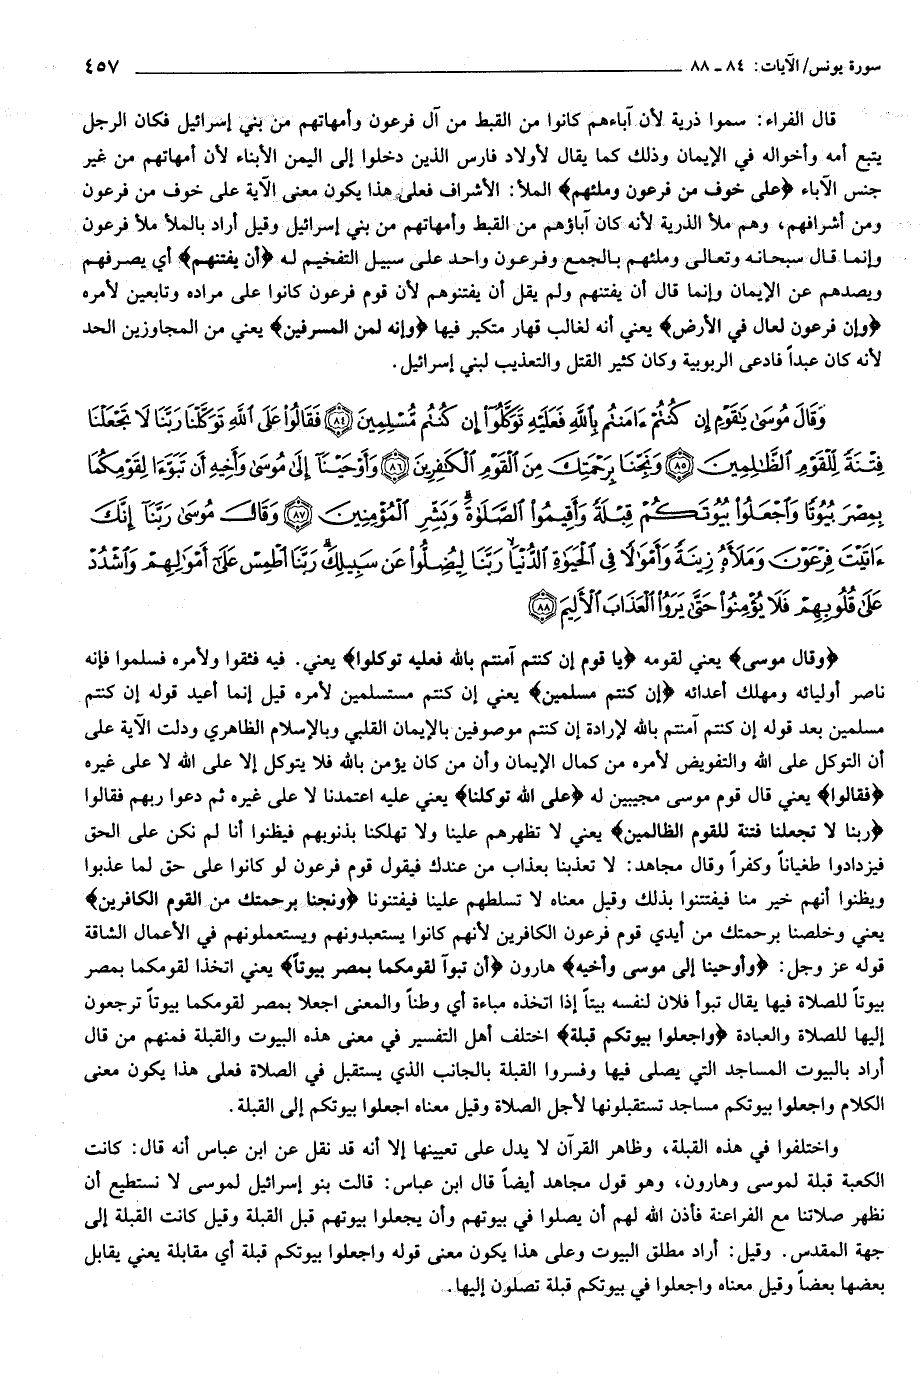 سورة يونس/ الآيات: ٨٤ ـ ٨٨ ٤٥٧
قال الفراء: سموا ذرية لأن آباءهم كانوا من القبط من آل فرعون وأمهاتهم من بني إسرائيل فكان الرجل
يتبع أمه وأخواله في الإيمان وذلك كما يقال لأولاد فارس الذين دخلوا إلى اليمن الأبناء لأن أمهاتهم من غير
جنس الآباء ﴿على خوف من فرعون وملئهم﴾ الملأ: الأشراف فعلى هذا يكون معنى الآية على خوف من فرعون
ومن أشرافهم، وهم ملأ الذرية لأنه كان آباؤهم من القبط وأمهاتهم من بني إسرائيل وقيل أراد بالملأ ملأ فرعون
وإنما قال سبحانه وتعالى وملئهم بالجمع وفرعون واحد على سبيل التفخيم له ﴿أن يفتنهم﴾ أي يصرفهم
ويصدهم عن الإيمان وإنما قال أن يفتنهم ولم يقل أن يفتنوهم لأن قوم فرعون كانوا على مراده وتابعين لأمره
﴿وإن فرعون لعال في الأرض﴾ يعني أنه لغالب قهار متكبر فيها ﴿وإنه لمن المسرفين﴾ يعني من المجاوزين الحد
لأنه كان عبداً فادعى الربوبية وكان كثير القتل والتعذيب لبني إسرائيل.
وَقَالَ مُوسَىٰ يَٰقَوْمِ إِن كُنتُمْ ءَامَنتُم بِٱللَّهِ فَعَلَيْهِ تَوَكَّلُوٓا۟ إِن كُنتُم مُّسْلِمِينَ ﴿٨٤﴾ فَقَالُوا۟ عَلَى ٱللَّهِ تَوَكَّلْنَا رَبَّنَا لَا تَجْعَلْنَا
فِتْنَةً لِّلْقَوْمِ ٱلظَّٰلِمِينَ ﴿٨٥﴾ وَنَجِّنَا بِرَحْمَتِكَ مِنَ ٱلْقَوْمِ ٱلْكَٰفِرِينَ ﴿٨٦﴾ وَأَوْحَيْنَآ إِلَىٰ مُوسَىٰ وَأَخِيهِ أَن تَبَوَّءَا لِقَوْمِكُمَا
بِمِصْرَ بُيُوتًا وَٱجْعَلُوا۟ بُيُوتَكُمْ قِبْلَةً وَأَقِيمُوا۟ ٱلصَّلَوٰةَ ۗ وَبَشِّرِ ٱلْمُؤْمِنِينَ ﴿٨٧﴾ وَقَالَ مُوسَىٰ رَبَّنَآ إِنَّكَ
ءَاتَيْتَ فِرْعَوْنَ وَمَلَأَهُۥ زِينَةً وَأَمْوَٰلًا فِى ٱلْحَيَوٰةِ ٱلدُّنْيَا ۙ رَبَّنَا لِيُضِلُّوا۟ عَن سَبِيلِكَ ۖ رَبَّنَا ٱطْمِسْ عَلَىٰٓ أَمْوَٰلِهِمْ وَٱشْدُدْ
عَلَىٰ قُلُوبِهِمْ فَلَا يُؤْمِنُوا۟ حَتَّىٰ يَرَوُا۟ ٱلْعَذَابَ ٱلْأَلِيمَ ﴿٨٨﴾
﴿وقال موسى﴾ يعني لقومه ﴿يا قوم إن كنتم آمنتم بالله فعليه توكلوا﴾ يعني. فيه فثقوا ولأمره فسلموا فإنه
ناصر أوليائه ومهلك أعدائه ﴿إن كنتم مسلمين﴾ يعني إن كنتم مستسلمين لأمره قيل إنما أعيد قوله إن كنتم
مسلمين بعد قوله إن كنتم آمنتم بالله لإرادة إن كنتم موصوفين بالإيمان القلبي وبالإسلام الظاهري ودلت الآية على
أن التوكل على الله والتفويض لأمره من كمال الإيمان وأن من كان يؤمن بالله فلا يتوكل إلا على الله لا على غيره
﴿فقالوا﴾ يعني قال قوم موسى مجيبين له ﴿على الله توكلنا﴾ يعني عليه اعتمدنا لا على غيره ثم دعوا ربهم فقالوا
﴿ربنا لا تجعلنا فتنة للقوم الظالمين﴾ يعني لا تظهرهم علينا ولا تهلكنا بذنوبهم فيظنوا أنا لم نكن على الحق
فيزدادوا طغياناً وكفراً وقال مجاهد: لا تعذبنا بعذاب من عندك فيقول قوم فرعون لو كانوا على حق لما عذبوا
ويظنوا أنهم خير منا فيفتتنوا بذلك وقيل معناه لا تسلطهم علينا فيفتنونا ﴿ونجنا برحمتك من القوم الكافرين﴾
يعني وخلصنا برحمتك من أيدي قوم فرعون الكافرين لأنهم كانوا يستعبدونهم ويستعملونهم في الأعمال الشاقة
قوله عز وجل: ﴿وأوحينا إلى موسى وأخيه﴾ هارون ﴿أن تبوآ لقومكما بمصر بيوتاً﴾ يعني اتخذا لقومكما بمصر
بيوتاً للصلاة فيها يقال تبوأ فلان لنفسه بيتاً إذا اتخذه مباءة أي وطناً والمعنى اجعلا بمصر لقومكما بيوتاً ترجعون
إليها للصلاة والعبادة ﴿واجعلوا بيوتكم قبلة﴾ اختلف أهل التفسير في معنى هذه البيوت والقبلة فمنهم من قال
أراد بالبيوت المساجد التي يصلى فيها وفسروا القبلة بالجانب الذي يستقبل في الصلاة فعلى هذا يكون معنى
الكلام واجعلوا بيوتكم مساجد تستقبلونها لأجل الصلاة وقيل معناه اجعلوا بيوتكم إلى القبلة.
واختلفوا في هذه القبلة، وظاهر القرآن لا يدل على تعيينها إلا أنه قد نقل عن ابن عباس أنه قال: كانت
الكعبة قبلة لموسى وهارون، وهو قول مجاهد أيضاً قال ابن عباس: قالت بنو إسرائيل لموسى لا نستطيع أن
نظهر صلاتنا مع الفراعنة فأذن الله لهم أن يصلوا في بيوتهم وأن يجعلوا بيوتهم قبل القبلة وقيل كانت القبلة إلى
جهة المقدس. وقيل: أراد مطلق البيوت وعلى هذا يكون معنى قوله واجعلوا بيوتكم قبلة أي مقابلة يعني يقابل
بعضها بعضاً وقيل معناه واجعلوا في بيوتكم قبلة تصلون إليها.